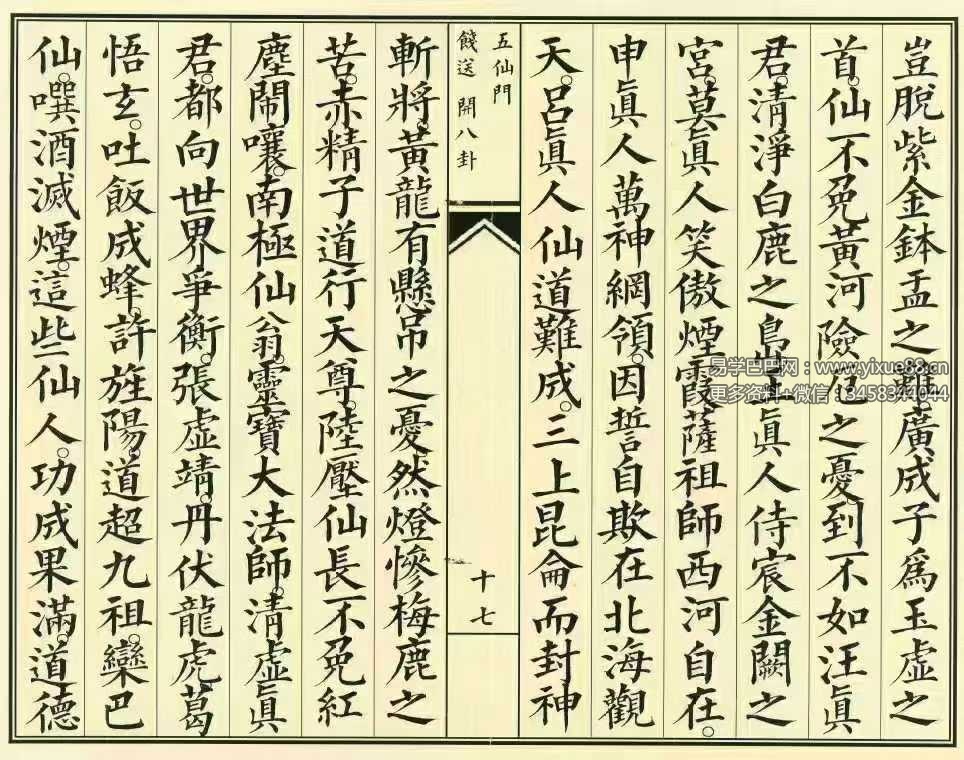 豈脫紫金鉢盂之難。廣成子爲玉虛之
首。仙不免黃河險厄之憂。到不如汪眞
君。清淨白鹿之島。王眞人侍宸金闕之
宮。莫眞人笑傲煙霞。薩祖師西河自在。
申眞人萬神綱領。因誓自欺在北海觀
天。呂眞人仙道難成。三上昆侖而封神
五仙門
餞送 開八卦
十七
斬將。黃龍有懸吊之憂。然燈慘梅鹿之
苦。赤精子道行天尊。陸壓仙長不免紅
塵鬧嚷。南極仙翁。靈寶大法師。清虛眞
君。都向世界爭衡。張虛靖。丹伏龍虎。葛
悟玄。吐飯成蜂。許旌陽。道超九祖。欒巴
仙。噀酒滅煙。這些仙人。功成果滿。道德
易学巴巴网：www.yixue88.cn
更多资料+微信：13458344044